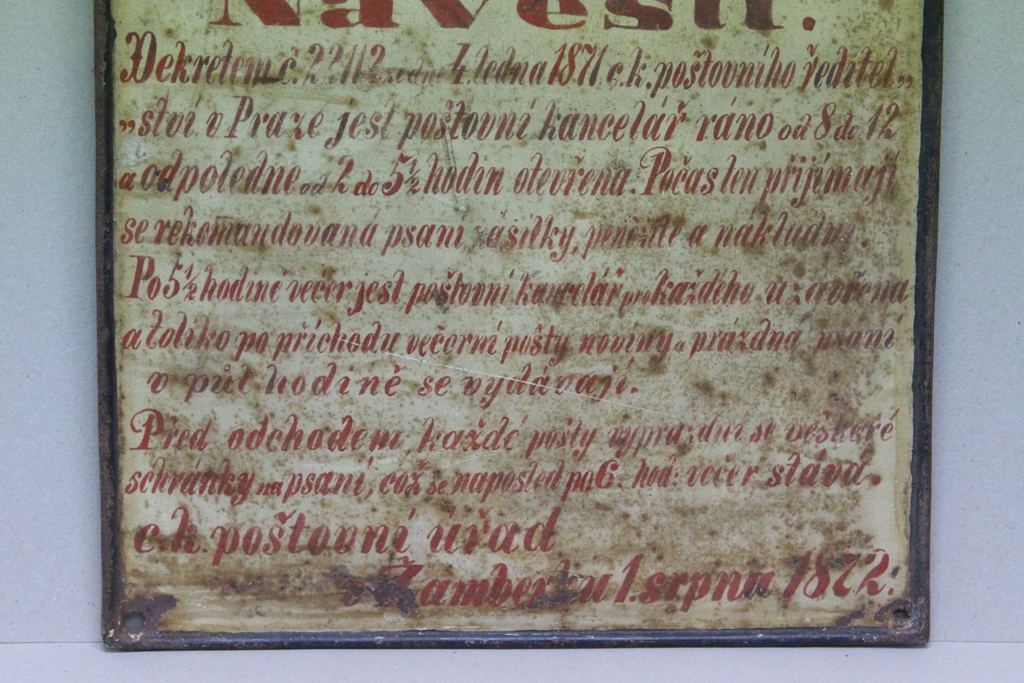 Návěstí.
Dekretem č. 22112 ze dne 4. ledna 1871 c.k. poštovního ředitel„
„ství v Praze jest poštovní kancelář ráno od 8 do 12
a odpoledne od 2 do 5½ hodin otevřena. Počas ten přijímají
se rekomandovaná psaní zásilky, peněžité a nákladní.
Po 5½ hodině večer jest poštovní kancelář pro každého uzavřena
a toliko po příchodu večerní pošty noviny a prázdná psaní
v půl hodině se vydávají.
Před odchodem každé pošty vyprázdní se veškeré
schránky na psaní, což se naposled po 6. hod: večer stává.
c.k. poštovní úřad
v Žamberku 1. srpna 1872.